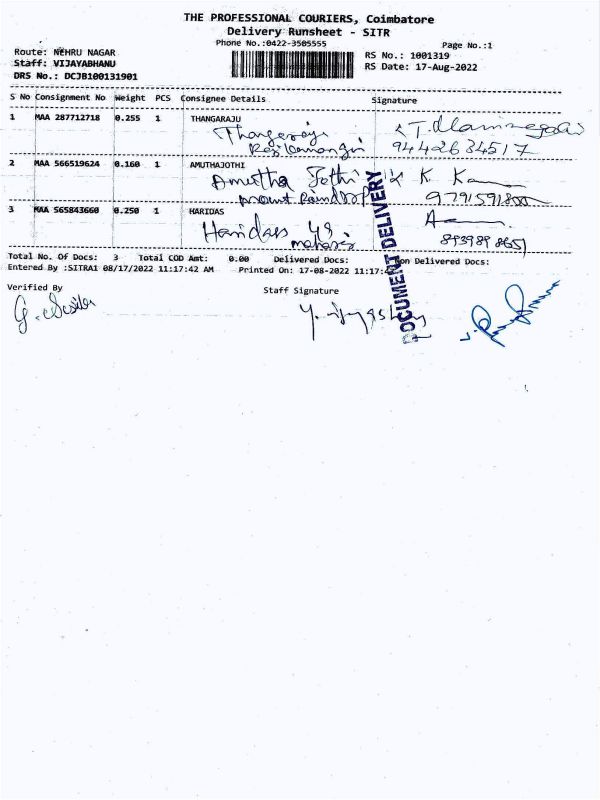 THE PROFESSIONAL COURIERS, Coimbatore
Delivery Runsheet - SITR
Phone No.:0422-3505555
Page No.:1
Route: NEHRU NAGAR
RS No.: 1001319
Staff: VIJAYABHANU
RS Date: 17-Aug-2022
DRS No.: DCJB100131901
S No Consignment No Weight PCS Consignee Details Signature
1 MAA 287712718 0.255 1 THANGARAJU
Thangaraju
9442634517
2 MAA 566519624 0.160 1 AMUTHAJOTHI
Amutha Jothi K K
mount Raindrop 9791591800
3 MAA 565843660 0.250 1 HARIDAS
Haridas
8939898651
DOCUMENT DELIVERY
Total No. Of Docs: 3 Total COD Amt: 0.00 Delivered Docs: Non Delivered Docs:
Entered By :SITRA1 08/17/2022 11:17:42 AM Printed On: 17-08-2022 11:17:42
Verified By
Staff Signature